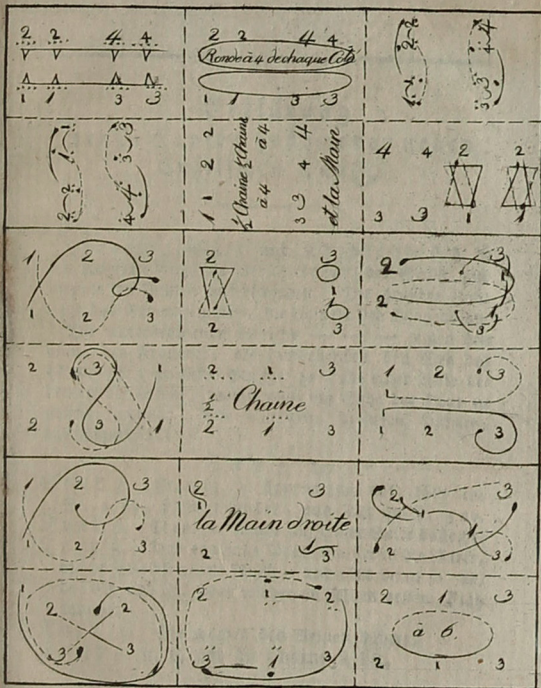 2 2 4 4
1 1 3 3
2 2 4 4
Ronde à 4 de chaque Coté
1 1 3 3
2 2 4 4
1 1 3 3
1 1 3 3
2 2 4 4
1 1 2 2
½ Chaine ½ Chaine
à 4 à 4
3 3 4 4
et la Main
4 4 2 2
3 3 1 1
1 2 3
1 2 3
2 3
1 1
2 3
2 3
1
2 1
3
2 3 1
2 3 1
2 1 3
½ Chaine
2 1 3
1 2 3
1 2 3
1 2 3
1 2 3
2 3
1
la Main droite
2 1 3
2 3
1 1
2 3
1 1
2 2
3 3
2 1 2
3 1 3
2 1 3
à 6.
2 1 3